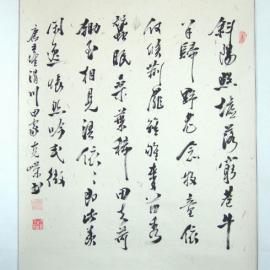 斜陽照墟落窮巷牛
羊歸野老念牧童倚
杖候荊扉雉雊麥苗秀
蠶眠桑葉稀田夫荷
鋤至相見語依々即此羨
閒逸悵然吟式微
唐王維渭川田家 書